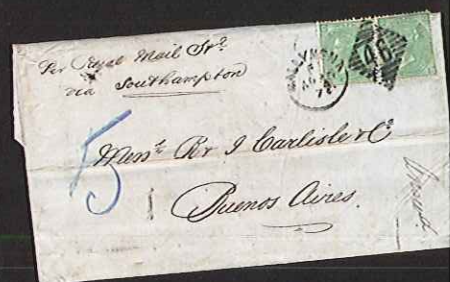 Per Royal Mail Str.
via Southampton
46
5
Messrs. Rr J Carlisle & Co
Buenos Aires.